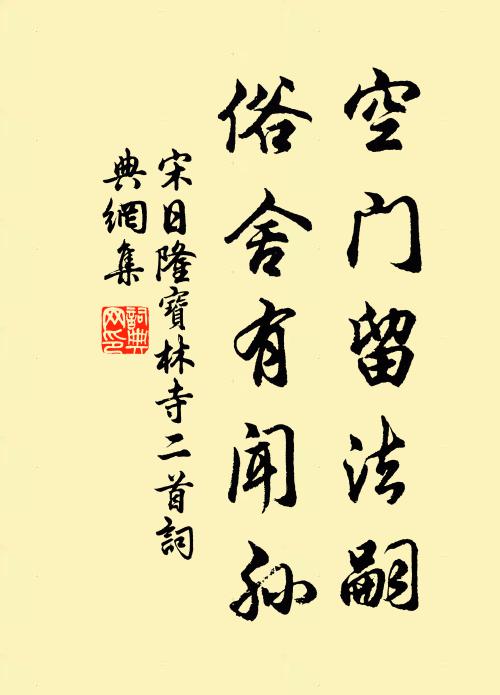 空门留法嗣
俗舍有闻孙
宋日隆寶林寺二首詞
典網集
詞典网印